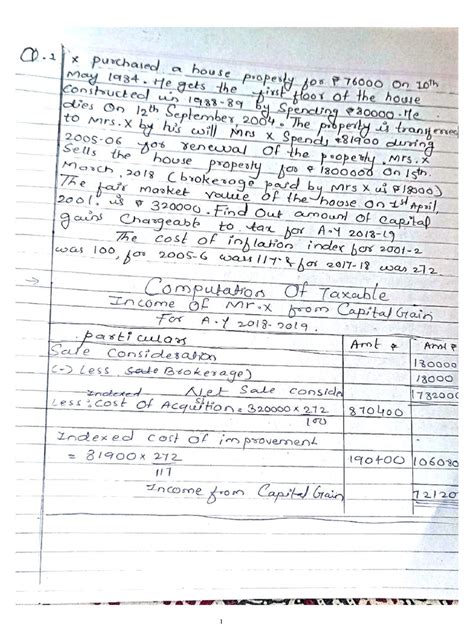 Q.1 X purchased a house property for ₹ 76000 on 10th
May 1984. He gets the first floor of the house
constructed in 1988-89 by spending ₹80000. He
dies on 12th September, 2004. The property is transferred
to Mrs. X by his will Mrs X spends ₹81900 during
2005-06 for renewal of the property. Mrs. X
Sells the house property for ₹ 1800000 on 15th
March, 2018 (brokerage paid by Mrs X is ₹18000)
The fair market value of the house on 1st April,
2001. is ₹ 320000. Find out amount of capital
gains Chargeabt to tax for A.Y 2018-19
The cost of inflation index for 2001-2
was 100, for 2005-6 was 117 & for 2017-18 was 272.
→ Computation Of Taxable
Income Of Mr.X from Capital Gain
For A.Y 2018-2019.
particulars Amt ₹ Amt ₹
Sale Consideration 180000
(-) Less Sale Brokerage) 18000
Net Sale conside 178200
Indexed
Less: Cost Of Acquition = 320000 × 272 870400
100
Indexed cost of improvement
= 81900 × 272 190400 106080
117
Income from Capital Gain 72120
1